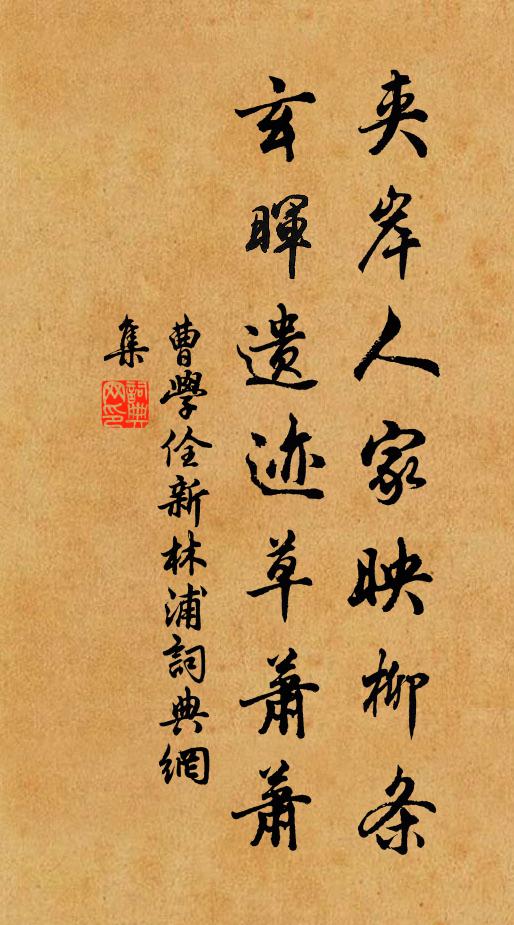 夹岸人家映柳条
玄暉遗迹草萧萧
曹學佺新林浦詞典網
集
詞典
网印